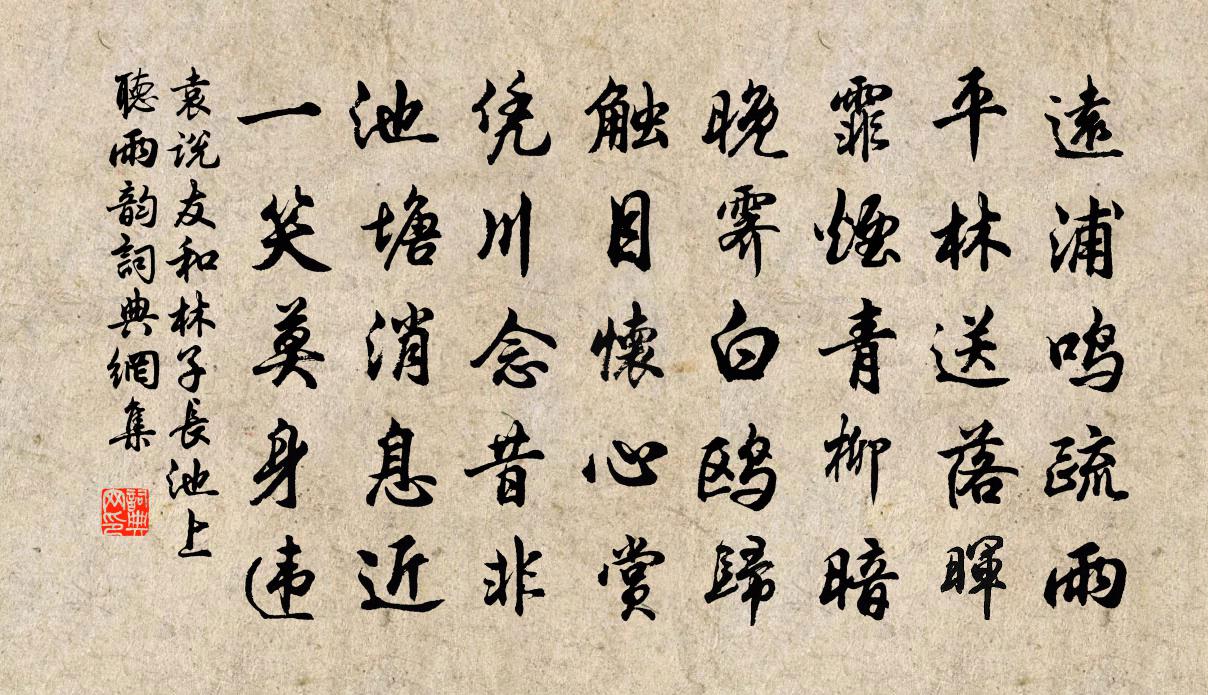 遠浦鳴疏雨
平林送落暉
霏煙青柳暗
晚霽白鸥歸
触目懷心赏
凭川念昔非
池塘消息近
一笑莫身违
袁说友和林子長池上
聽雨韵詞典網集
詞典
网印